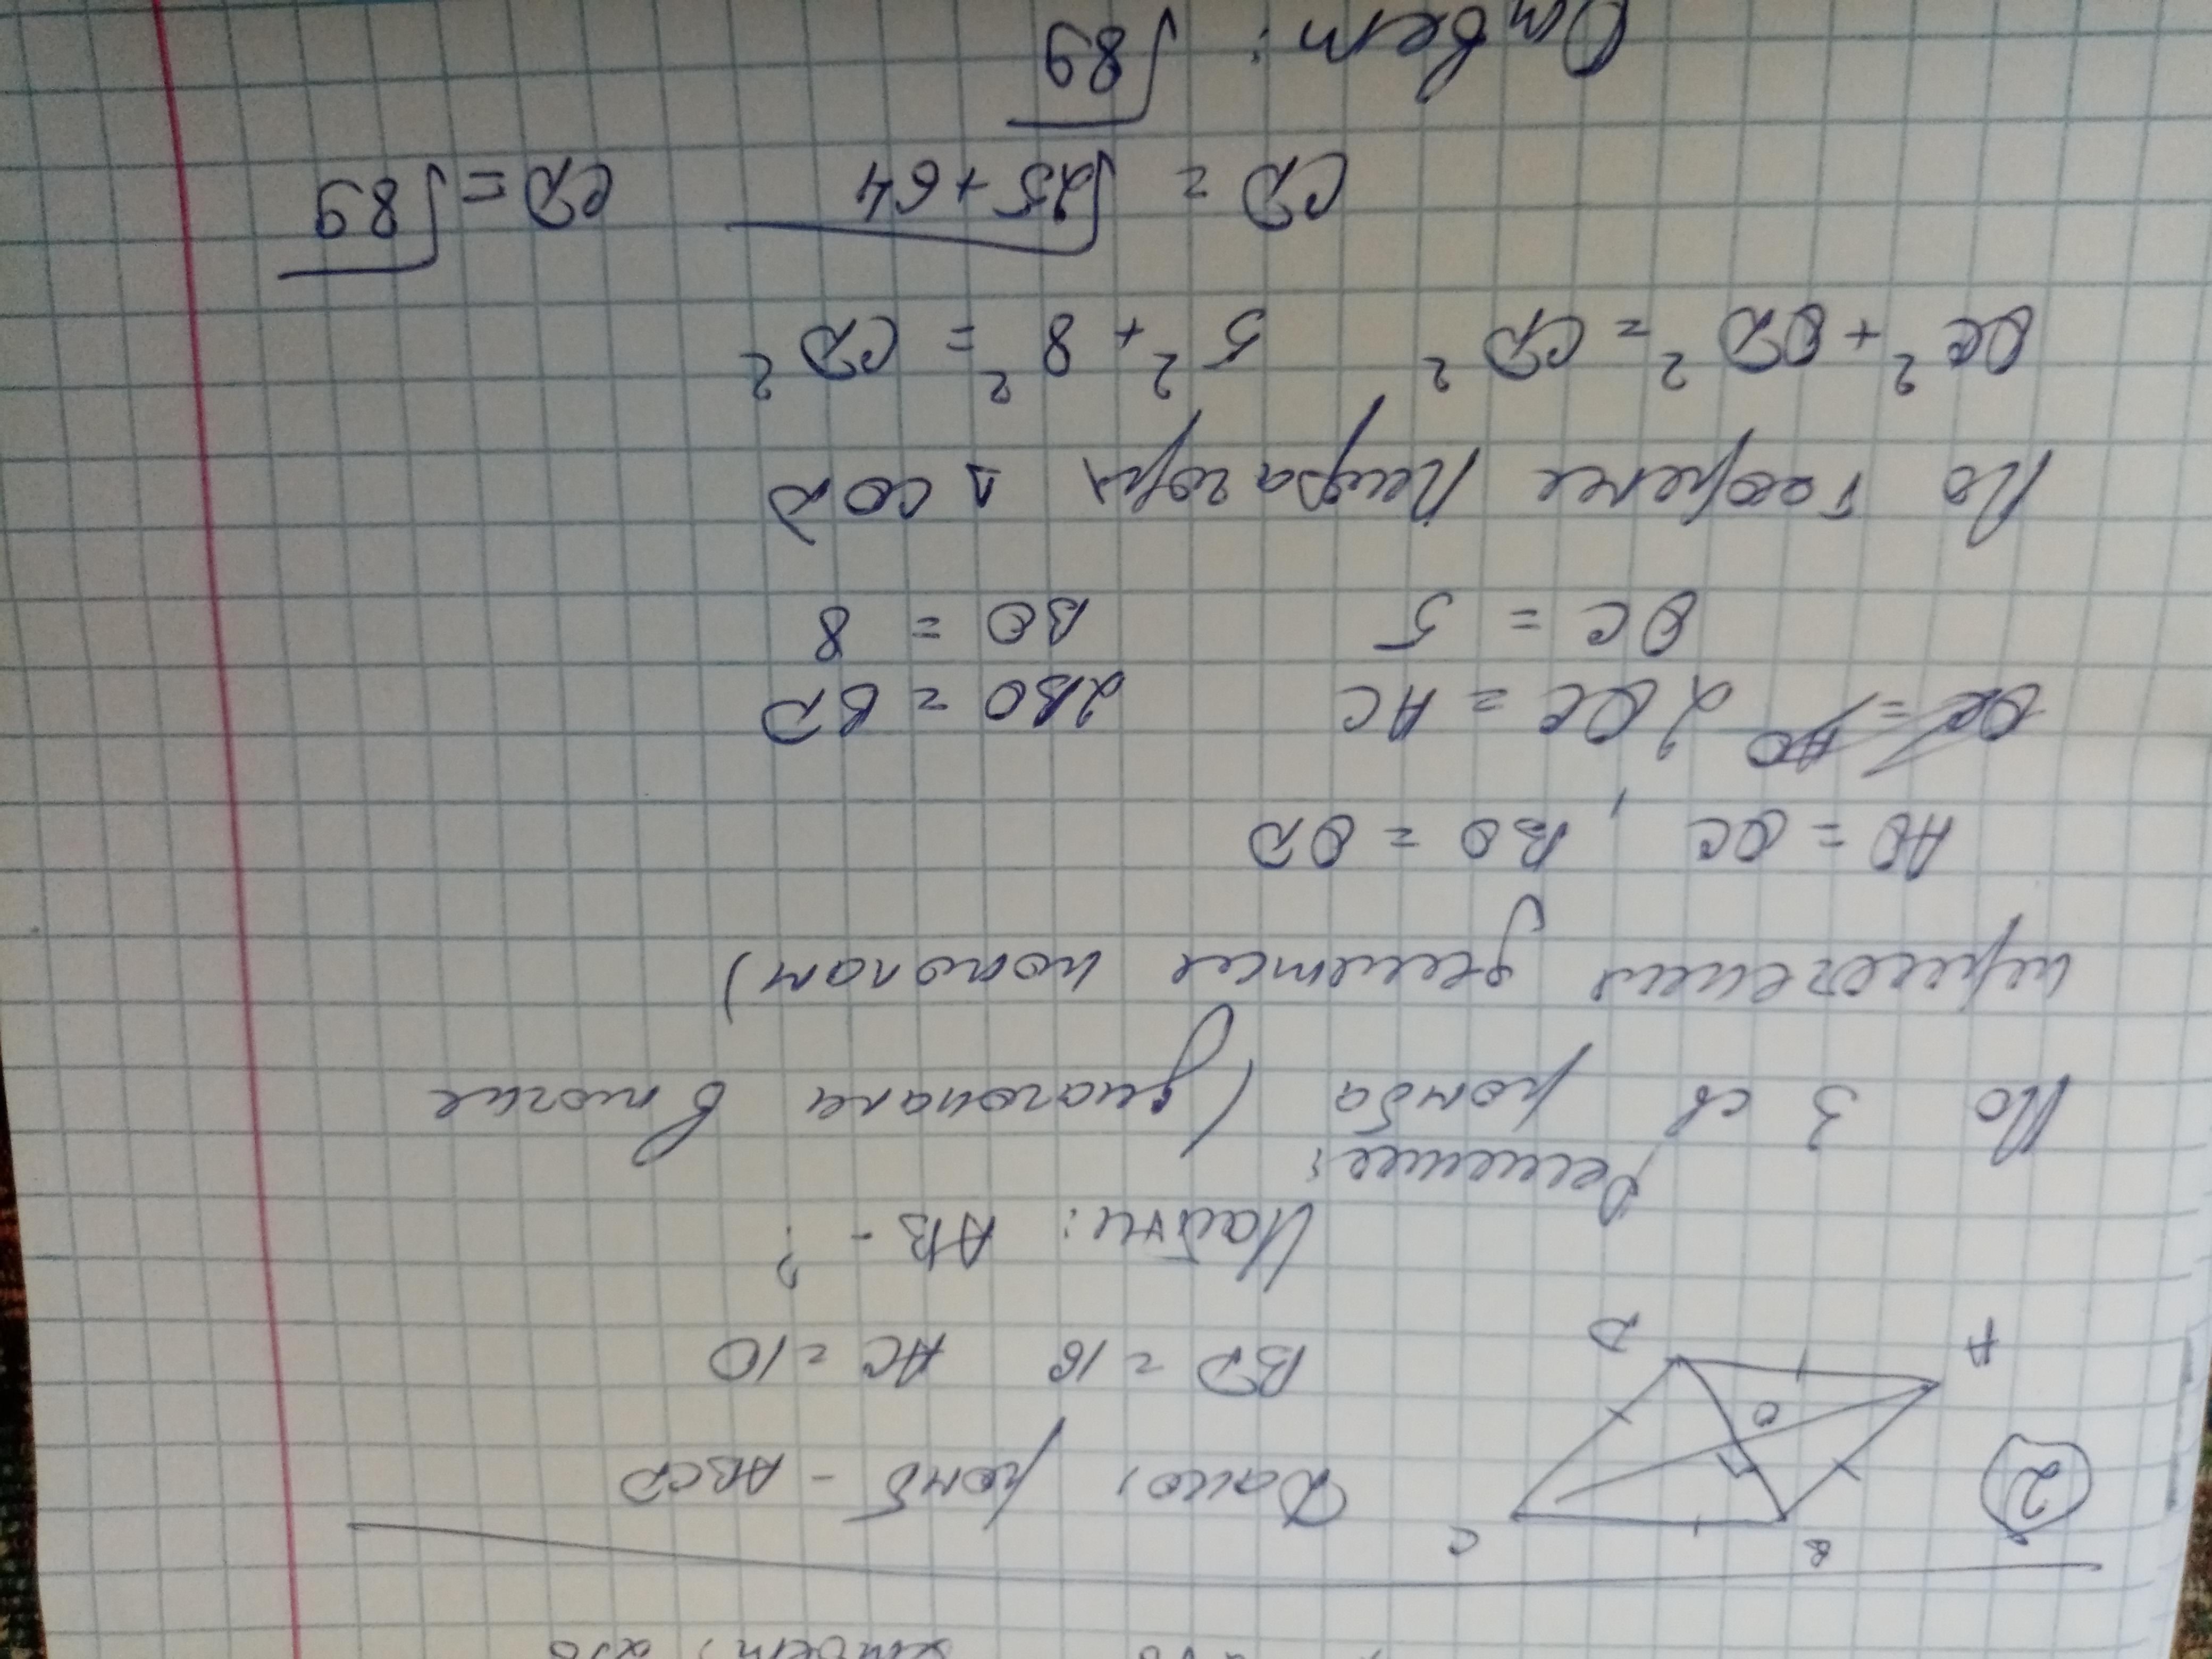 Ответ, 256
2
B C
A D
O
Дано, ромб - ABCD
BD = 16 AC = 10
Найти: AB - ?
Решение:
По 3 св ромба (диагонали в точке
пересечения делится пополам)
AO = OC , BO = OD
OC = AO 2OC = AC 2BO = BD
OC = 5 BO = 8
По теореме Пифагора △ COD
OC² + OD² = CD² 5² + 8² = CD²
CD = √25 + 64 CD = √89
Ответ: √89